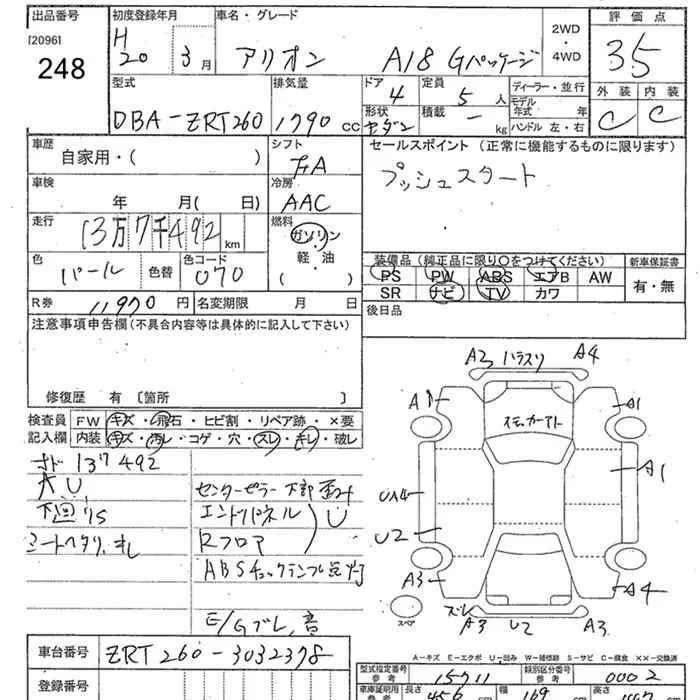 出品番号 初度登録年月 車名・グレード 2WD・4WD 評価点
[2096]
248
H20 3月 アリオン A18 Gパッケージ 35
型式 排気量 ドア 定員 ディーラー・並行 外装 内装
DBA-ZRT260 1790 cc 4 5人 モデル年式 年 C C
形状 セダン 積載 - kg ハンドル 左・右
車歴 シフト セールスポイント (正常に機能するものに限ります)
自家用・( ) FA プッシュスタート
車検 冷房
年 月( 日) AAC
走行 燃料
13万7千492km ガソリン
軽・油
( )
色 色コード 装備品 (純正品に限り○をつけてください) 新車保証書
パール 色替 070 PS PW ABS エアB AW 有・無
SR ナビ TV カワ
R券 11970円 名変期限 月 日 後日品
注意事項申告欄(不具合内容等は具体的に記入して下さい)
修復歴 有 〔箇所 〕
検査員 FW キズ・飛石・ヒビ割・リペア跡・×要
記入欄 内装 キズ・汚レ・コゲ・穴・スレ・キレ・破レ
137492
大U センターピラー下部歪み
下回りS エンドパネル U
シートヘタリ Rフロア
ABSチェックランプ点灯
E/Gブレ、音
A2 A4
A1 A1
A1
UA4
U2
A3 A4
スペア A3 U2 A3
A-キズ E-エクボ U-凹み W-補修跡 S-サビ C-腐食 ××-交換済
車台番号 ZRT260-3032378
型式指定番号 参考 15711 類別区分番号 参考 0002
登録番号
車庫証明用 参考 長さ 456 cm 幅 169 cm 高さ